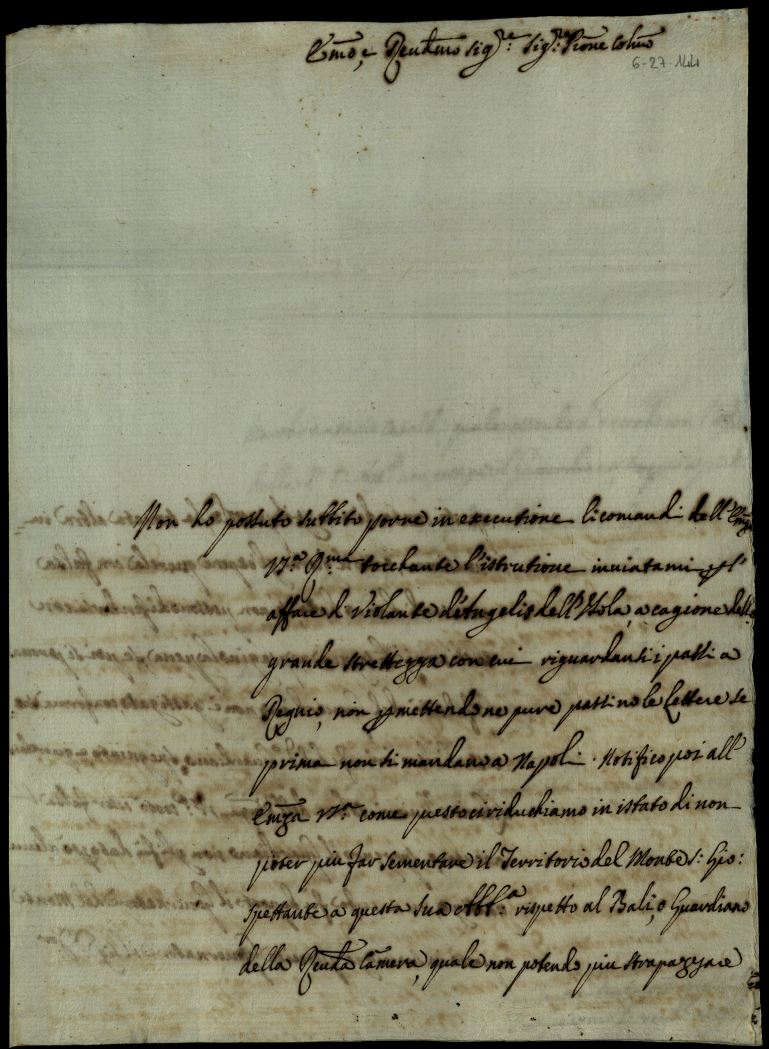 Em̃o, e Reud̃mo Sig:re Sig:re Pr̃one Colm̃o
6-27-144
Non ho possuto subbito porre in executione li comandi dell'Em̃za
V:ra R:ma tocchante l'istrutione inviatami p l'
affare d Violante d'Angelis dell'Isola, a cagione della
grande strettezza con cui riguardansi i passi a
Regnio, non pmettendo ne pure passino le lettere se
prima non si mandano a Napoli. Notifico poi all'
Em̃za V:ra come presto ci riduchiamo in istato di non
poter piu far sementare il Territorio del Monte S: Gio:
spettante a questa sua Abb:a rispetto al Bali, o Guardiano
della Reud̃a Cam̃era, quale non potendo piu strapazzare